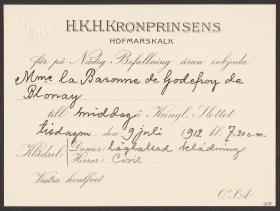 H.K.H. KRONPRINSENS
HOFMARSKALK
får på Nådig Befallning äran inbjuda
Mme la Baronne de Godefroy de
Blonay
till middag å Kungl. Slottet
tisdagen den 9 juli 1912 kl 7,30 e.m.
Klädsel: Damer: höghalsad klädning
Herrar: Civil
Västra hvalfvet
O.S.A.